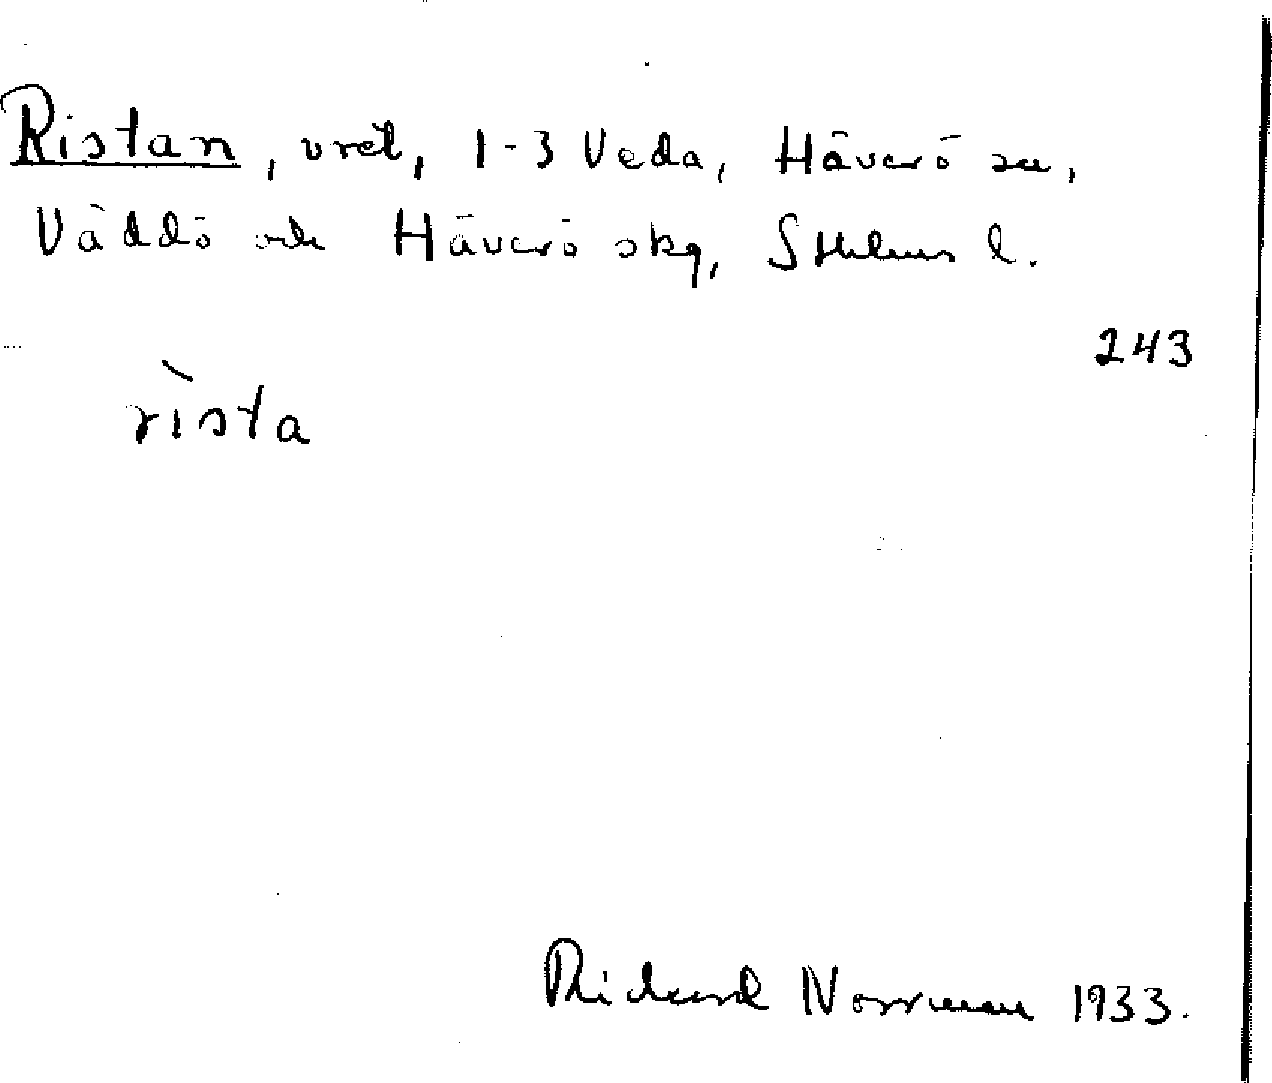 Ristan, vret, 1-3 Veda, Häverö sn,
Väddö och Häverö skg, Sthlms l.
243
rìsta
Richard Norrman 1933.